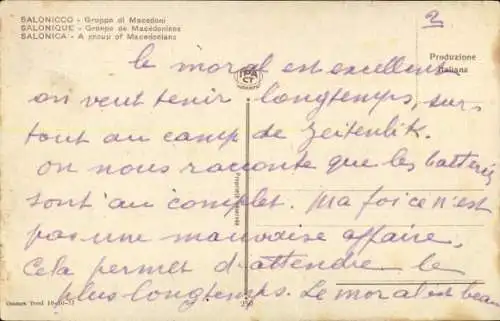 SALONICCO - Gruppo di Macedoni
SALONIQUE - Groupe de Macédoniens
SALONICA - A group of Macedonians
2
Produzione
Italiana
le moral est excellent
on veut tenir longtemps, sur
tout au camp de Zeitenlik.
on nous raconte que les batteries
sont au complet. Ma foi ce n'est
pas une mauvaise affaire,
Cela permet d'attendre le
plus longtemps. Le moral est beau
250